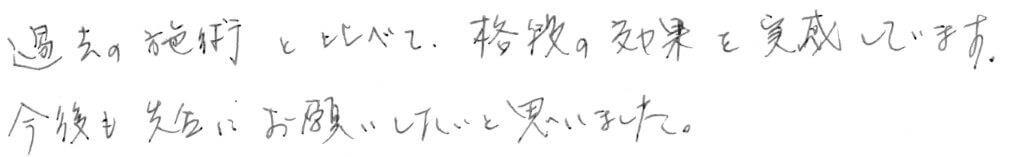 過去の施術と比べて、格段の効果を実感しています。
今後も先生にお願いしたいと思いました。